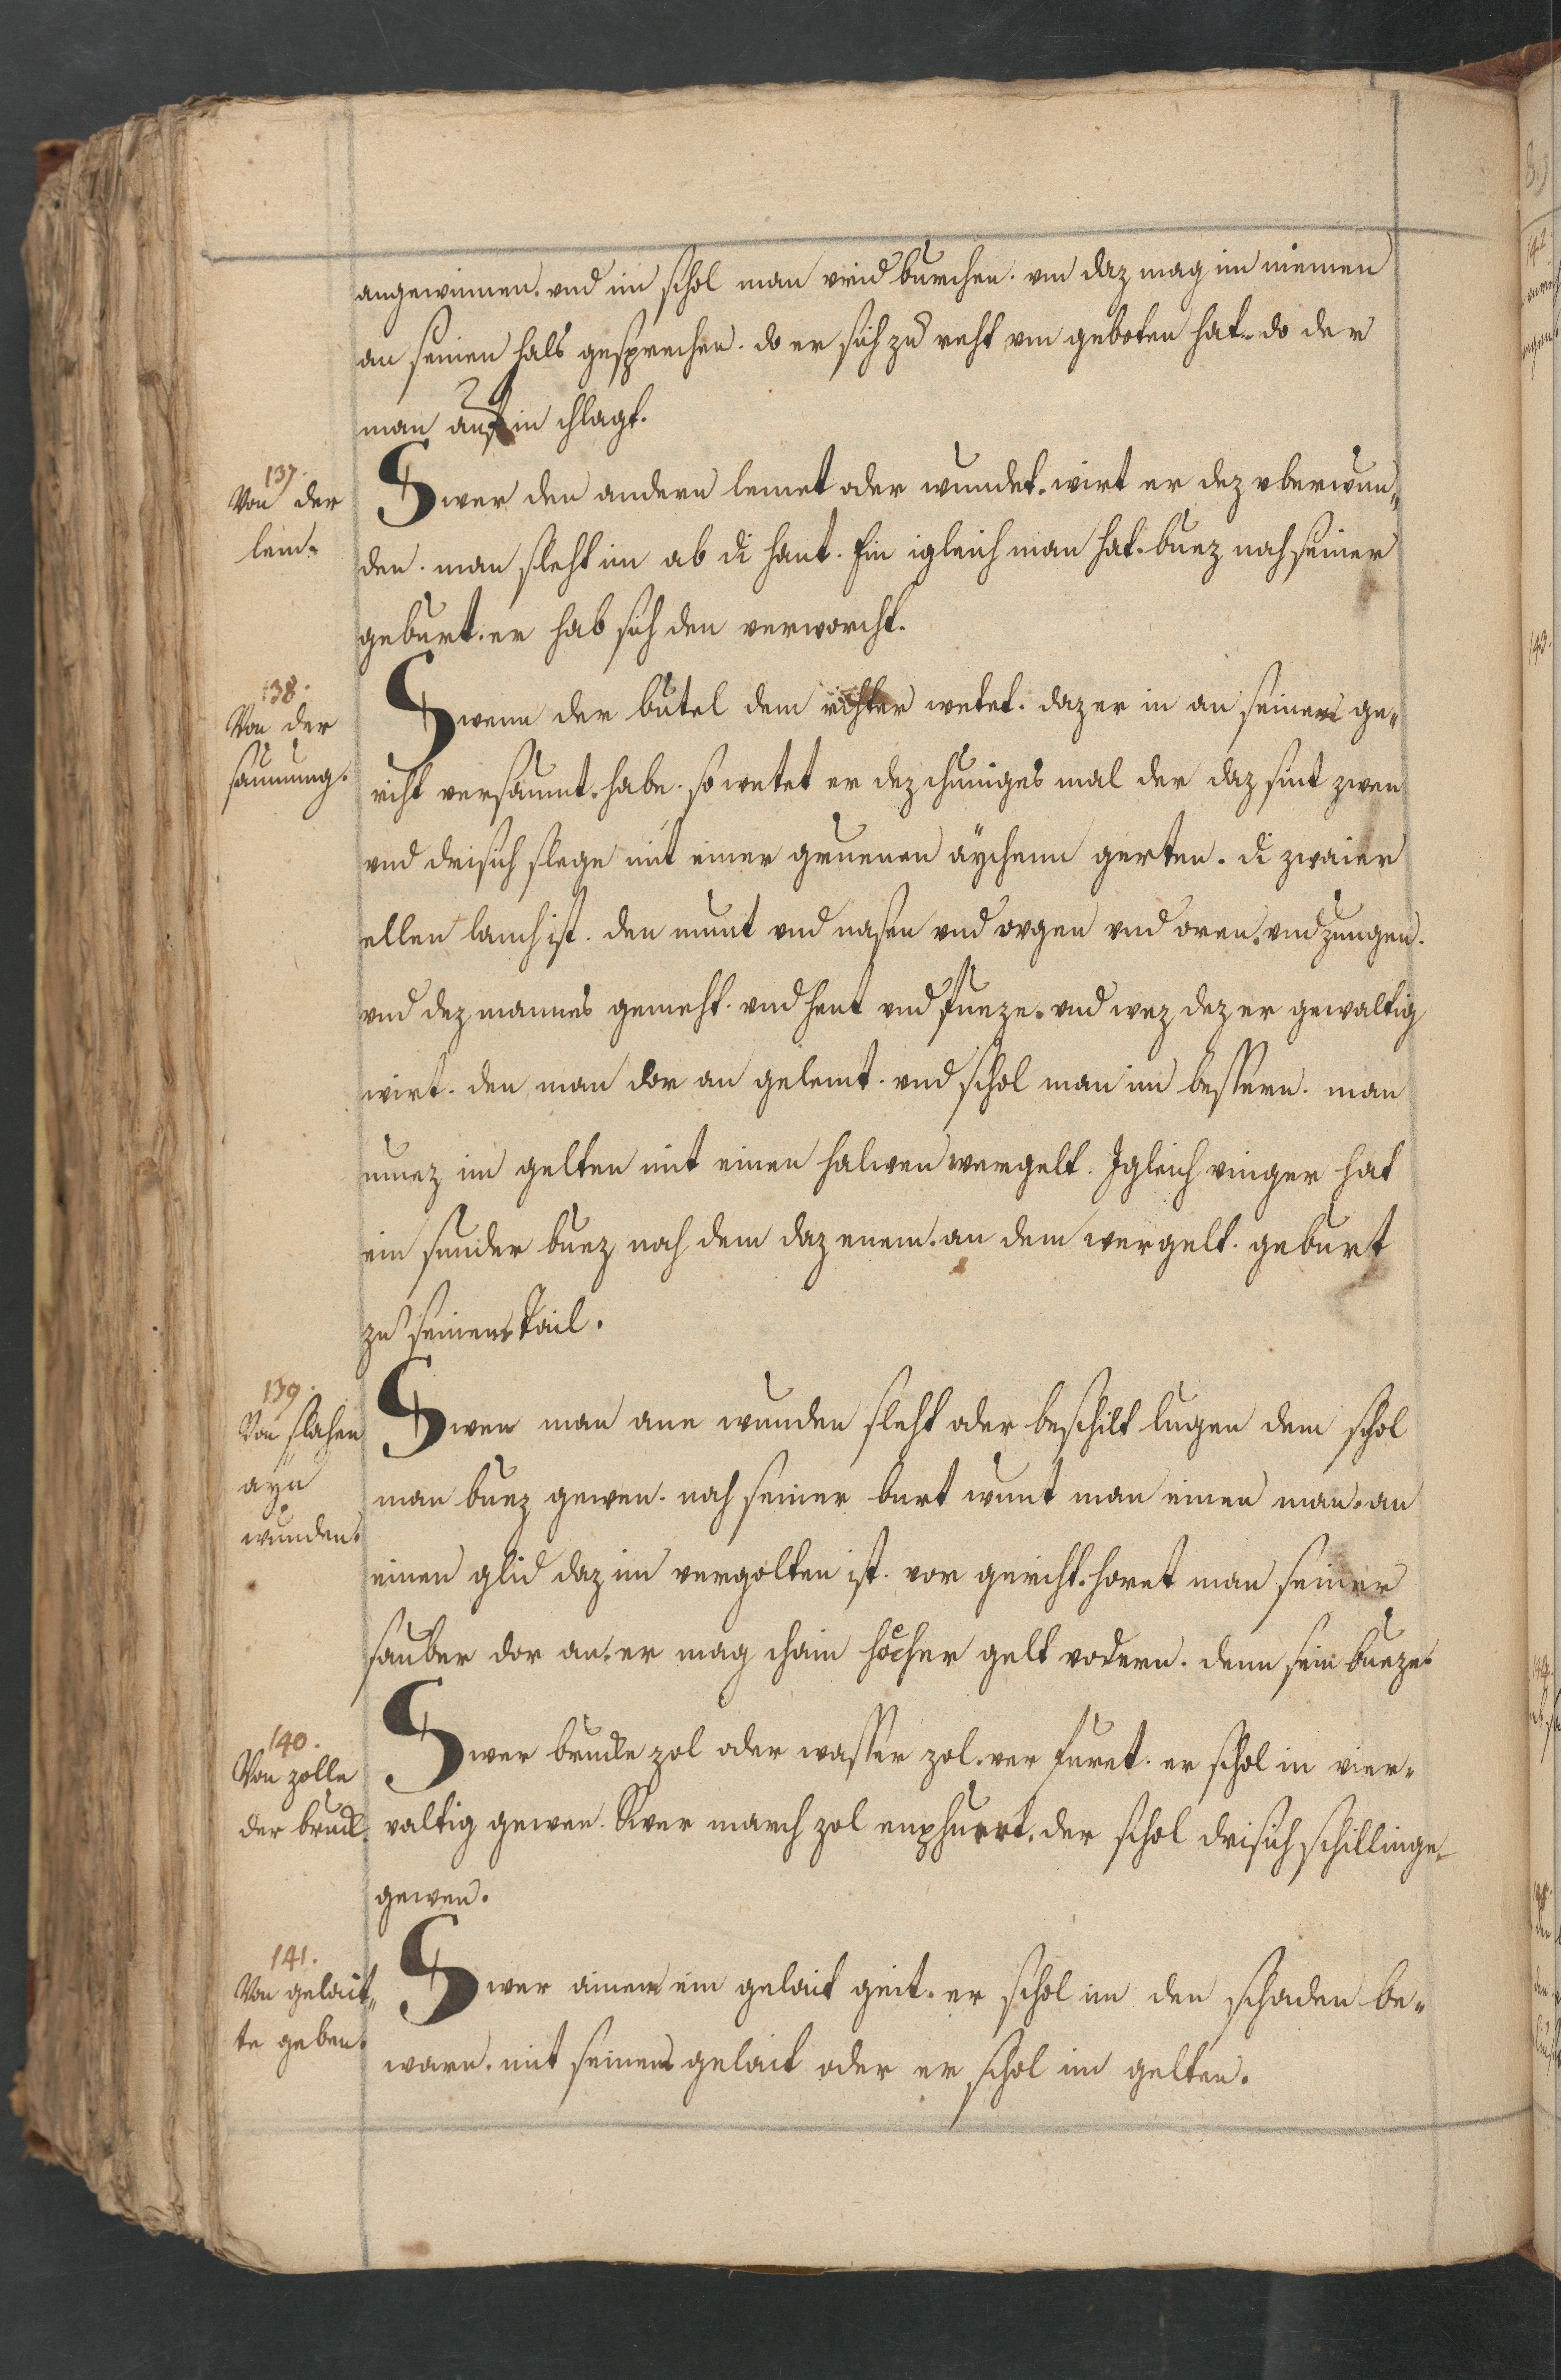 angewinnen. vnd im schol man vrid burchen. vm daz mag im niemen
an seinen hals gesprechen. do er sich zu reht vm geboten hat. do der
man auf in chlagt.
137.
Von der
lem.
Swer den andern lemet oder wundet. wirt er dez vberwun„
den. man sleht im ab di hant. Ein igleich man hat. buez nach seiner
geburt. er hab sich den verworcht.
138.
Von der
saumung.
Swenn der butel dem richter wetet. daz er in an seinem ge„
richt versaumt. habe. so wetet er dez chuniges mal der daz sint zwen
vnd drisich slege mit einer gruenen aychenn gerten. di zwaier
ellen lanch ist. den munt vnd nasen vnd ovgen vnd oren. vnd zungen.
vnd dez mannes gemeht. vnd hent vnd fueze. vnd wez dez er gewaltig
wirt. den man dor an gelemt. vnd schol man im bessern. man
muez im gelten mit einen halwen wergelt. Igleich vinger hat
ein sunder buez nach dem daz enem. an dem wergelt. geburt
zu seinem tail.
139.
Von slahen
ayn
wunden.
Swen man ane wunden sleht oder beschilt lugen dem schol
man buez gewen. nach seiner burt wunt man einen man. an
einen glid daz im vergolten ist. vor gericht. horet man seiner
sauber dor an. er mag chain hocher gelt vodern. denn sein bueze.
140.
Von zolle
der bruck.
Swer brucke zol oder wasser zol. ver furet. er schol in vier„
valtig gewen. Swer march zol enphuert. der schol drisich schillinge
gewen.
141.
Von gelait„
te geben.
Swer ainem ein gelait geit. er schol im den schaden be„
warn. mit seinem gelait oder er schol im gelten.